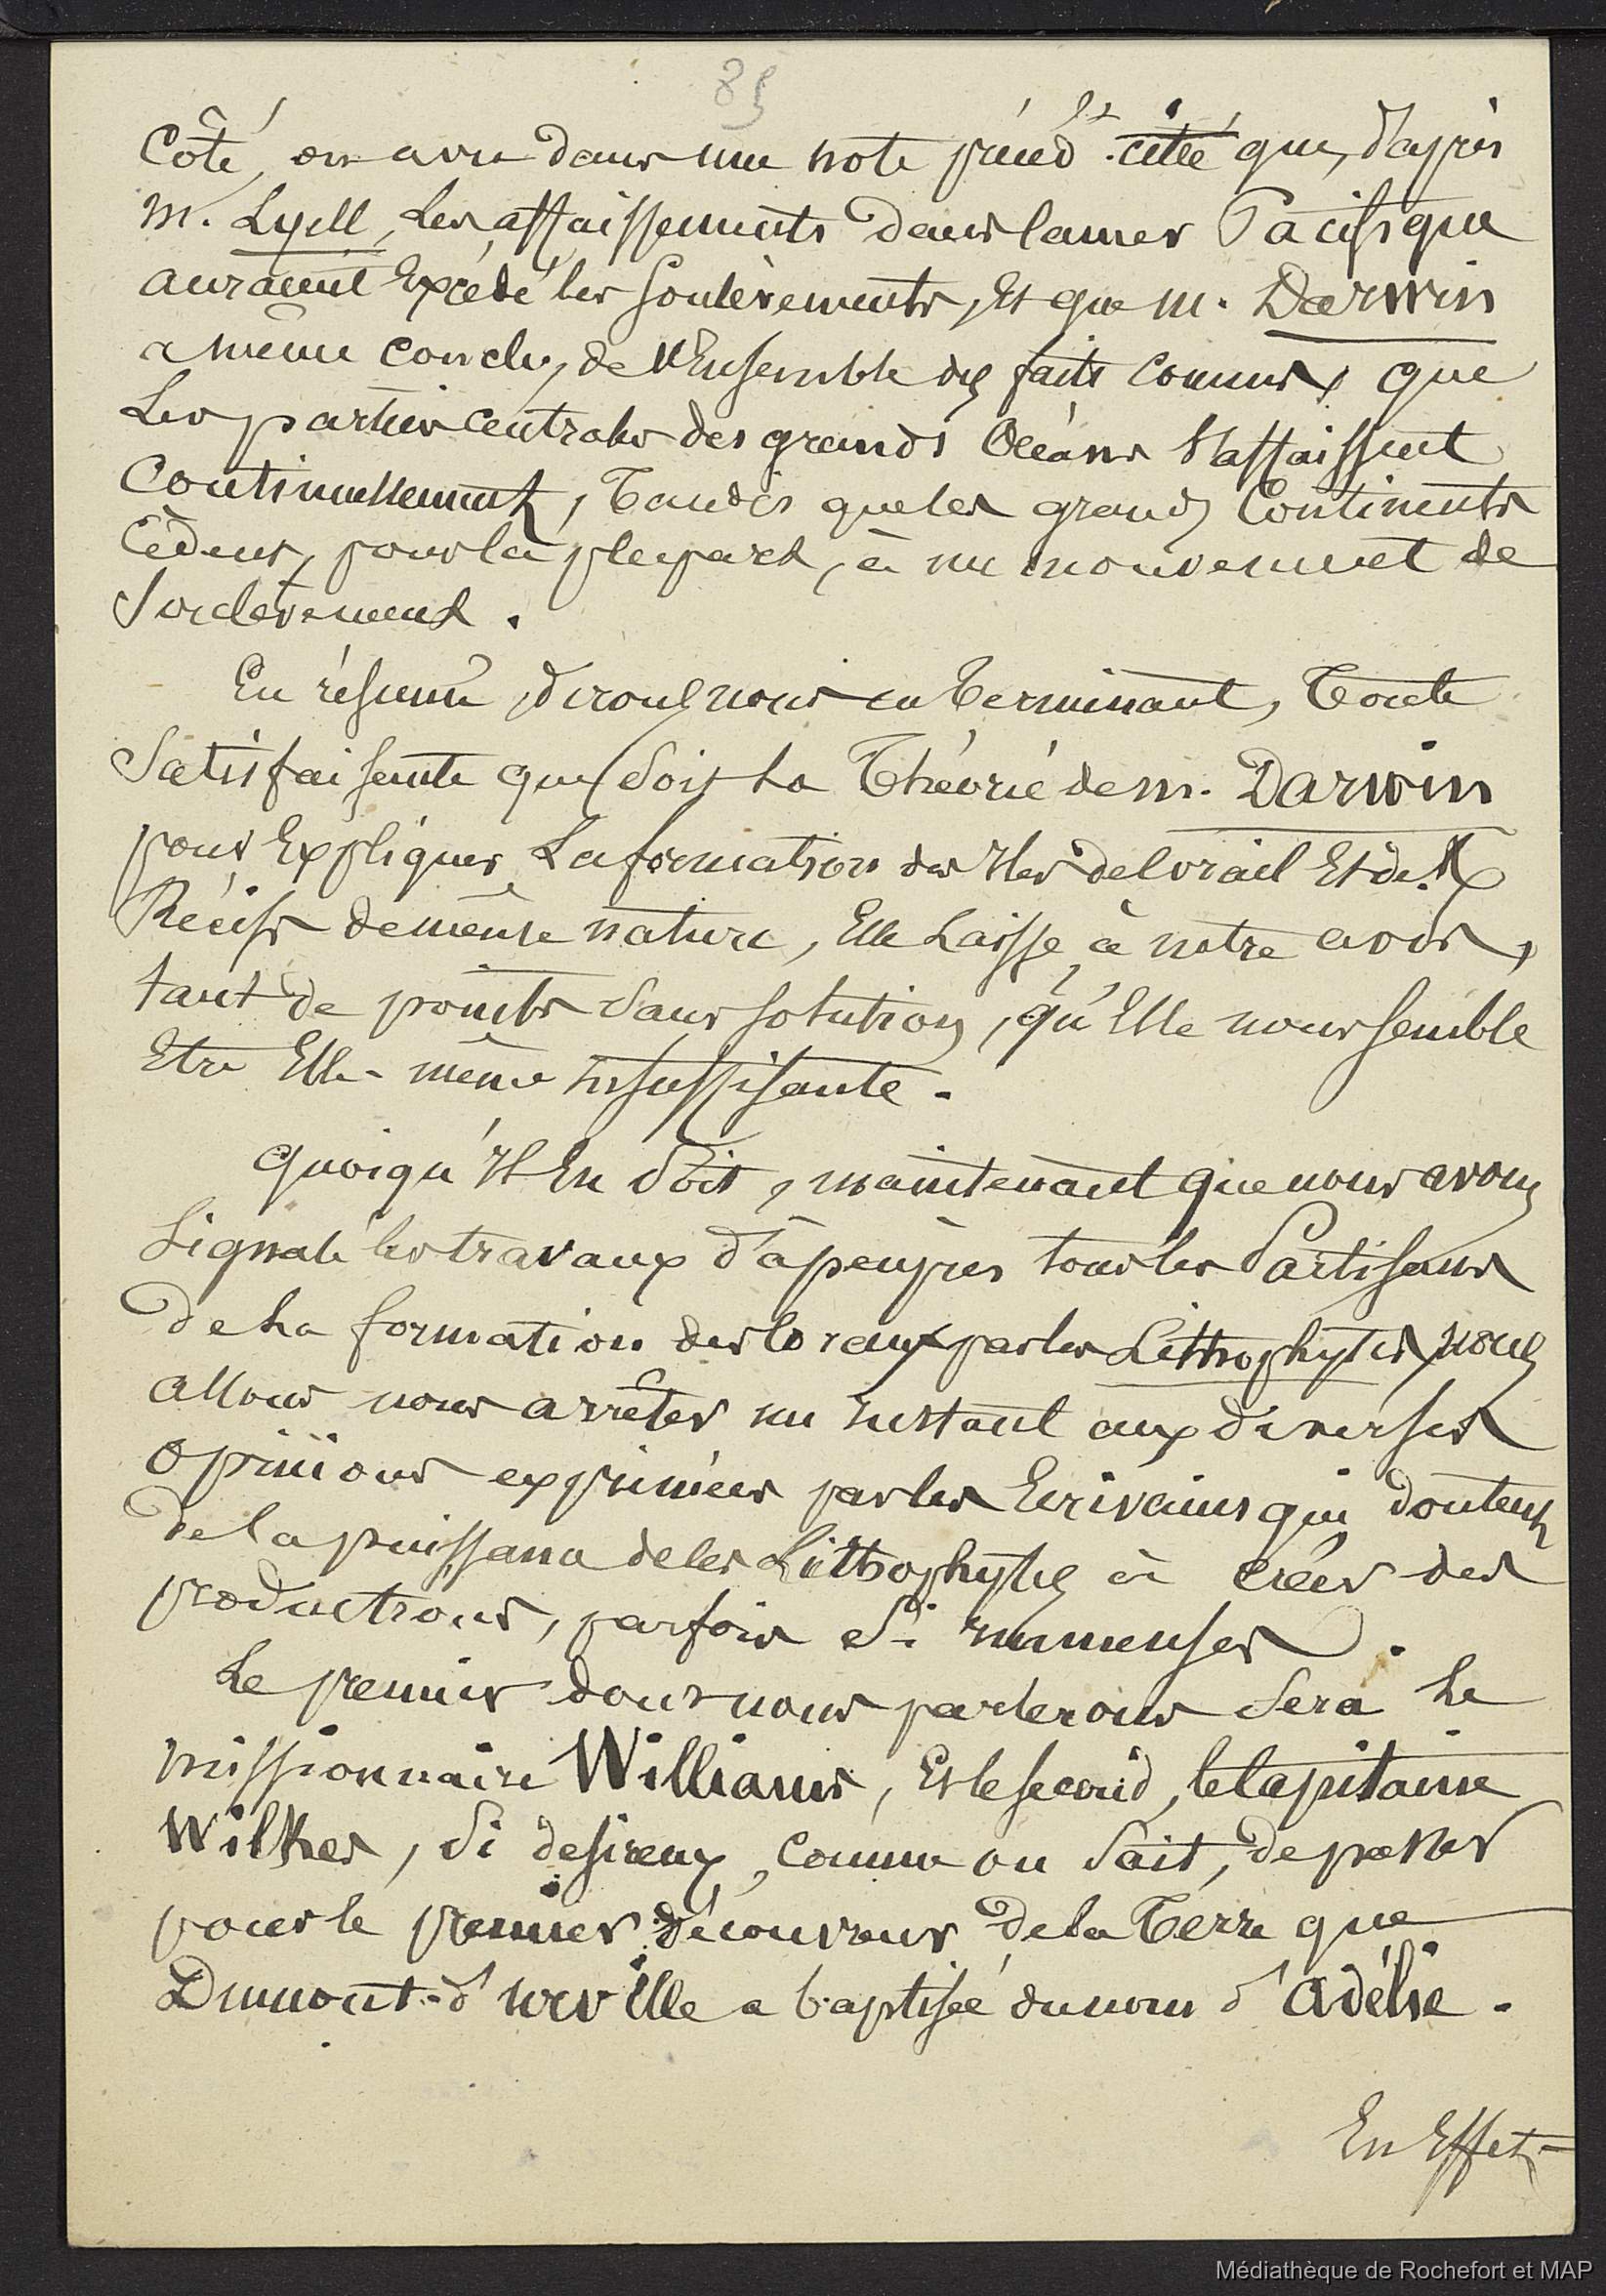 85
Côté, on a vu dans une note précéd.te citée que, d'après
M. Lyell, les affaissements dans la mer Pacifique
auraient Excédé les Soulèvements, Et que M. Darwin
a même conclu, de l'Ensemble des faits connus, que
Les parties centrales des grands Océans s'affaissent
Continuellement, Tandis que les grands Continents
Cèdent, pour la plupart, à un mouvement de
Soulèvement.
En résumé, dirons nous en Terminant, Toute
Satisfaisante que soit la Théorie de M. Darwin
pour Expliquer La formation des Iles de Corail Et des
Récifs de même nature, Elle Laisse, à notre avis,
tant de points sans solution, qu'Elle nous semble
Etre Elle-même insuffisante.
Quoiqu'Il En Soit, maintenant que nous avons
Signalé les travaux d'àpeuprès tous les Partisans
De La formation des Coraux par les Lithophytes, nous
allons nous arrêter un Instant aux diverses
opinions exprimées par les Ecrivains qui doutent
De la puissance de ces Lithophytes à créer des
productions, parfois si immenses.
Le premier dont nous parlerons Sera Le
missionnaire Williams, Et le second, le Capitaine
Wilkes, Si désireux, comme on Sait, de passer
pour le premier découvreur De la Terre que
Dumont-d'Urville a baptisée du nom d'Adélie.
En Effet-
Médiathèque de Rochefort et MAP